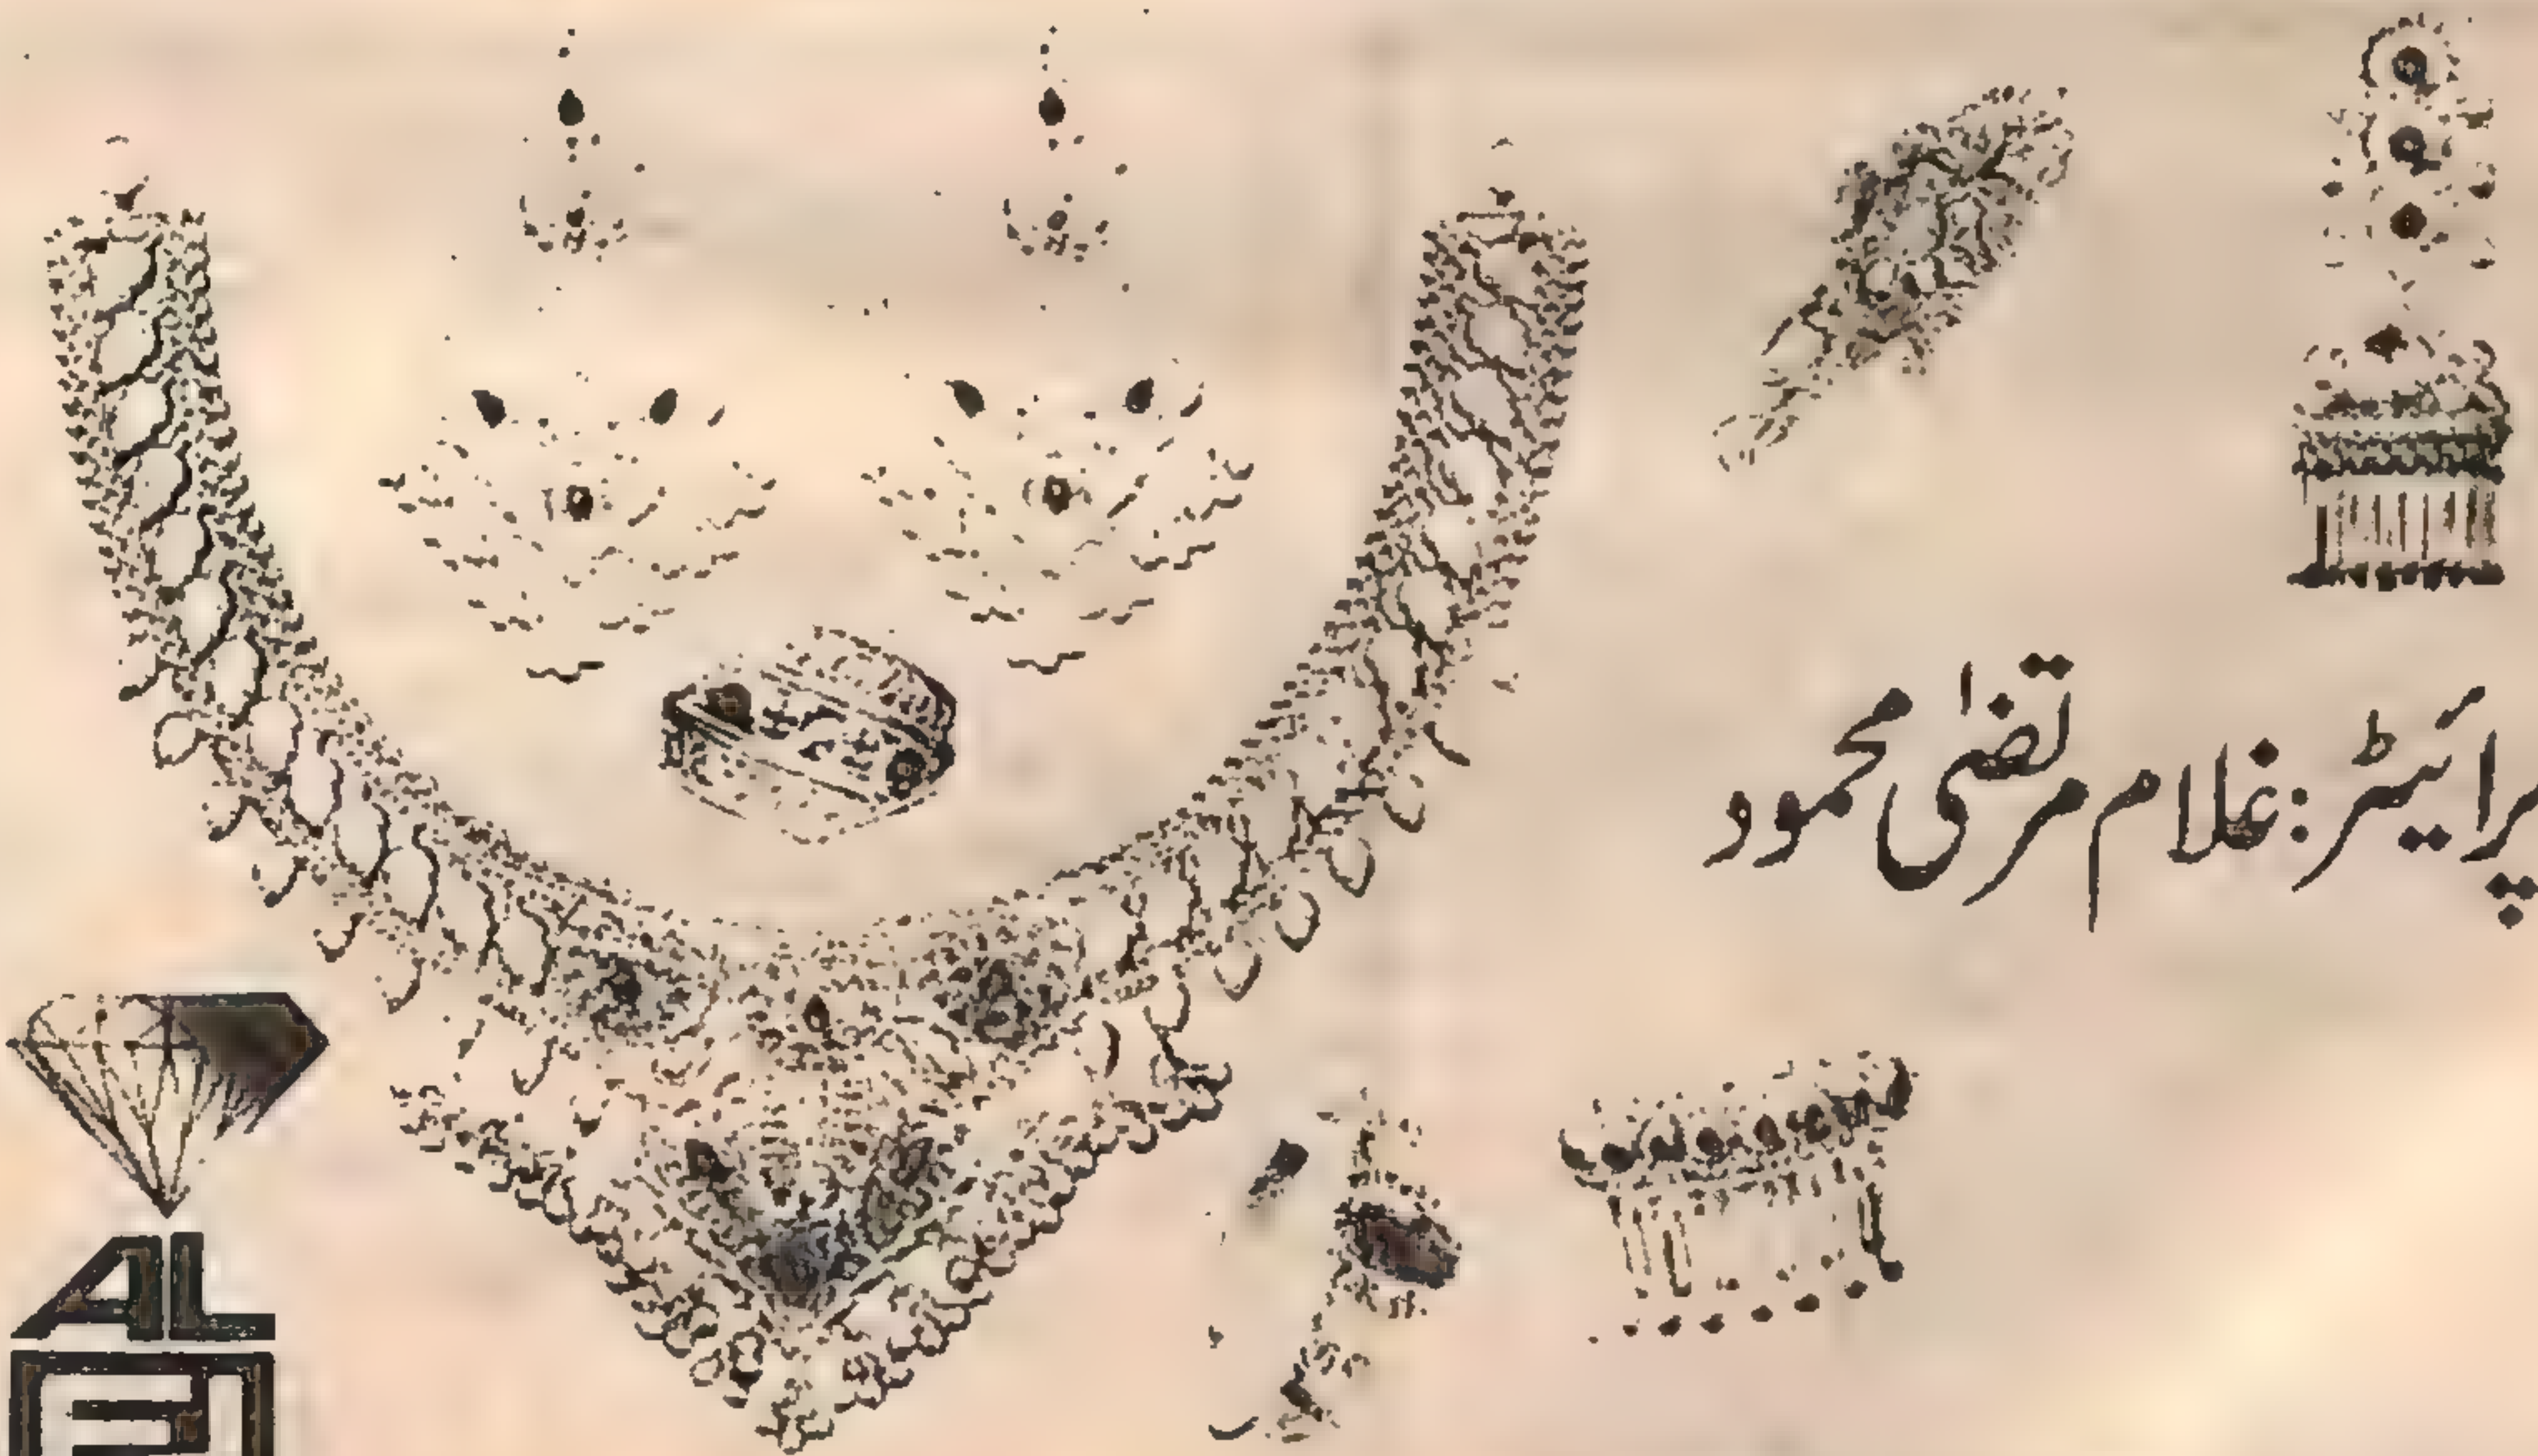 پرائیٹر : غلام مرتضیٰ محمود
AL